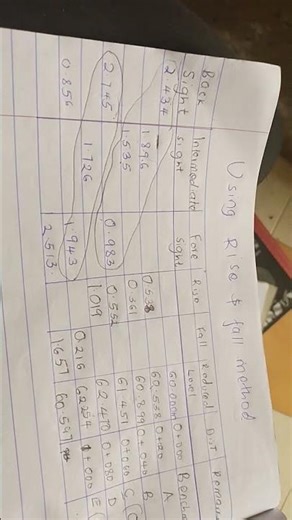 Using Rise & fall method
Back Sight Intermediate Sight Fore Sight Rise Fall Reduced Level Dist Remark
2.434 60.000m 0+000
1.896 0.538 60.538 0+020 A
1.535 0.361 60.899 0+040 B
2.745 0.983 0.552 61.451 0+060 C
1.726 1.019 62.470 0+080 D
0.856 1.943 0.216 62.254 1+000 E
2.513 1.657 60.597